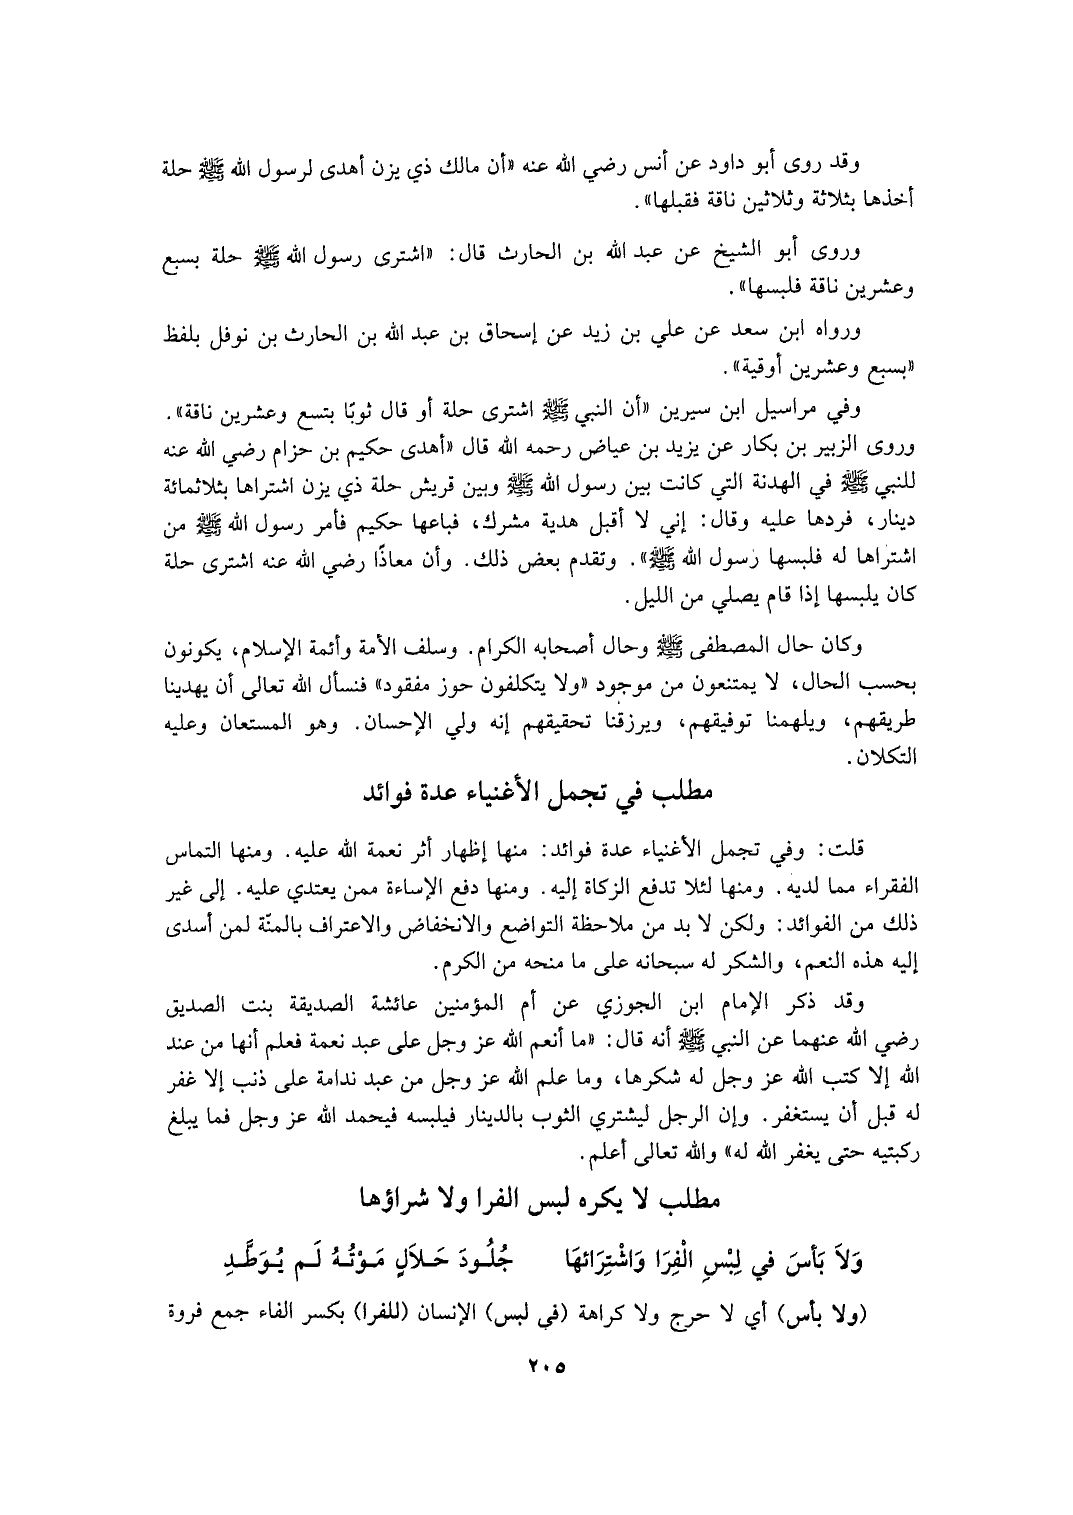 وقد روى أبو داود عن أنس رضي الله عنه «أن مالك ذي يزن أهدى لرسول الله ﷺ حلة
أخذها بثلاثة وثلاثين ناقة فقبلها».
وروى أبو الشيخ عن عبد الله بن الحارث قال: «اشترى رسول الله ﷺ حلة بسبع
وعشرين ناقة فلبسها».
ورواه ابن سعد عن علي بن زيد عن إسحاق بن عبد الله بن الحارث بن نوفل بلفظ
«بسبع وعشرين أوقية».
وفي مراسيل ابن سيرين «أن النبي ﷺ اشترى حلة أو قال ثوبًا بتسع وعشرين ناقة».
وروى الزبير بن بكار عن يزيد بن عياض رحمه الله قال «أهدى حكيم بن حزام رضي الله عنه
للنبي ﷺ في الهدنة التي كانت بين رسول الله ﷺ وبين قريش حلة ذي يزن اشتراها بثلاثمائة
دينار، فردها عليه وقال: إني لا أقبل هدية مشرك، فباعها حكيم فأمر رسول الله ﷺ من
اشتراها له فلبسها رسول الله ﷺ». وتقدم بعض ذلك. وأن معاذًا رضي الله عنه اشترى حلة
كان يلبسها إذا قام يصلي من الليل.
وكان حال المصطفى ﷺ وحال أصحابه الكرام. وسلف الأمة وأئمة الإسلام، يكونون
بحسب الحال، لا يمتنعون من موجود «ولا يتكلفون حوز مفقود» فنسأل الله تعالى أن يهدينا
طريقهم، ويلهمنا توفيقهم، ويرزقنا تحقيقهم إنه ولي الإحسان. وهو المستعان وعليه
التكلان.
مطلب في تجمل الأغنياء عدة فوائد
قلت: وفي تجمل الأغنياء عدة فوائد: منها إظهار أثر نعمة الله عليه. ومنها التماس
الفقراء مما لديه. ومنها لئلا تدفع الزكاة إليه. ومنها دفع الإساءة ممن يعتدي عليه. إلى غير
ذلك من الفوائد: ولكن لا بد من ملاحظة التواضع والانخفاض والاعتراف بالمنّة لمن أسدى
إليه هذه النعم، والشكر له سبحانه على ما منحه من الكرم.
وقد ذكر الإمام ابن الجوزي عن أم المؤمنين عائشة الصديقة بنت الصديق
رضي الله عنهما عن النبي ﷺ أنه قال: «ما أنعم الله عز وجل على عبد نعمة فعلم أنها من عند
الله إلا كتب الله عز وجل له شكرها، وما علم الله عز وجل من عبد ندامة على ذنب إلا غفر
له قبل أن يستغفر. وإن الرجل ليشتري الثوب بالدينار فيلبسه فيحمد الله عز وجل فما يبلغ
ركبتيه حتى يغفر الله له» والله تعالى أعلم.
مطلب لا يكره لبس الفرا ولا شراؤها
وَلاَ بَأسَ في لِبْسِ الْفِرَا وَاشْتِرَائهَا جُلُودَ حَلاَلٍ مَوْتُهُ لَم يُوَطَّدِ
(ولا بأس) أي لا حرج ولا كراهة (في لبس) الإنسان (للفرا) بكسر الفاء جمع فروة
٢٠٥